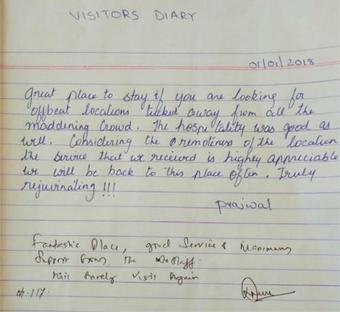 VISITORS DIARY
01/01/2018
Great place to stay if you are looking for
offbeat locations tucked away from all the
maddening crowd. The hospitality was good as
well. Considering the remoteness of the location
the service that we received is highly appreciable
we will be back to this place often. Truly
rejuvinating !!!
prajwal
Fantastic Place, good Service & Maximum
Support from the Staff.
Will surely visit Again